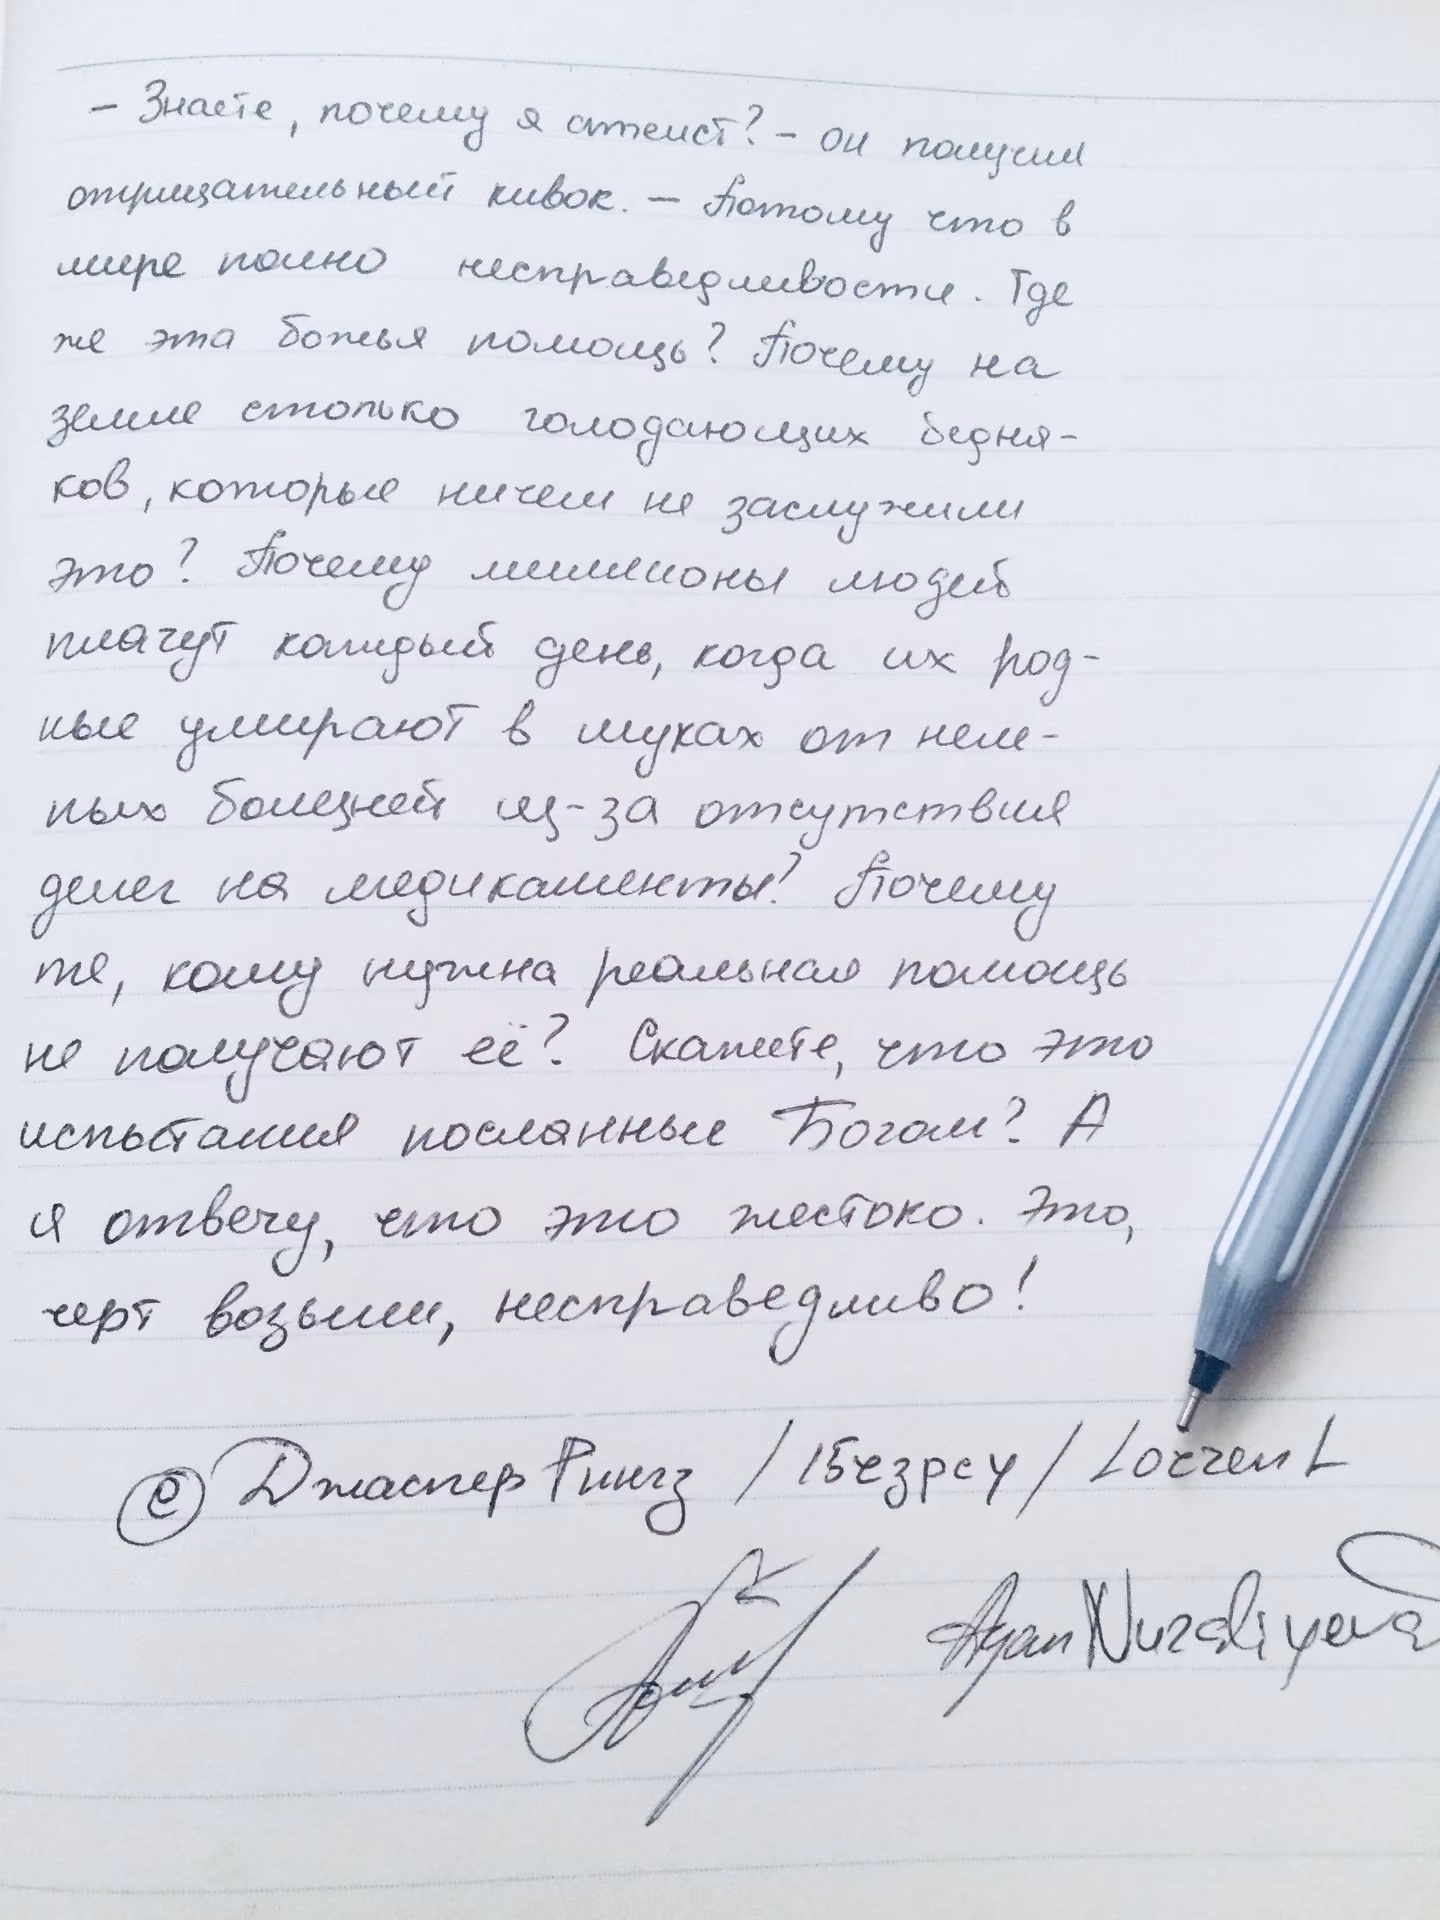 – Знаете, почему я атеист? – он получил
отрицательный кивок. – Потому что в
мире полно несправедливости. Где
же эта божья помощь? Почему на
земле столько голодающих бедня-
ков, которые ничем не заслужили
это? Почему миллионы людей
плачут каждый день, когда их род-
ные умирают в муках от неле-
пых болезней из-за отсутствия
денег на медикаменты? Почему
те, кому нужна реальная помощь
не получают её? Скажете, что это
испытания посланные Богом? А
я отвечу, что это жестоко. Это,
черт возьми, несправедливо!
© Джаспер Рингз / /
Ayan Nuraliyeva